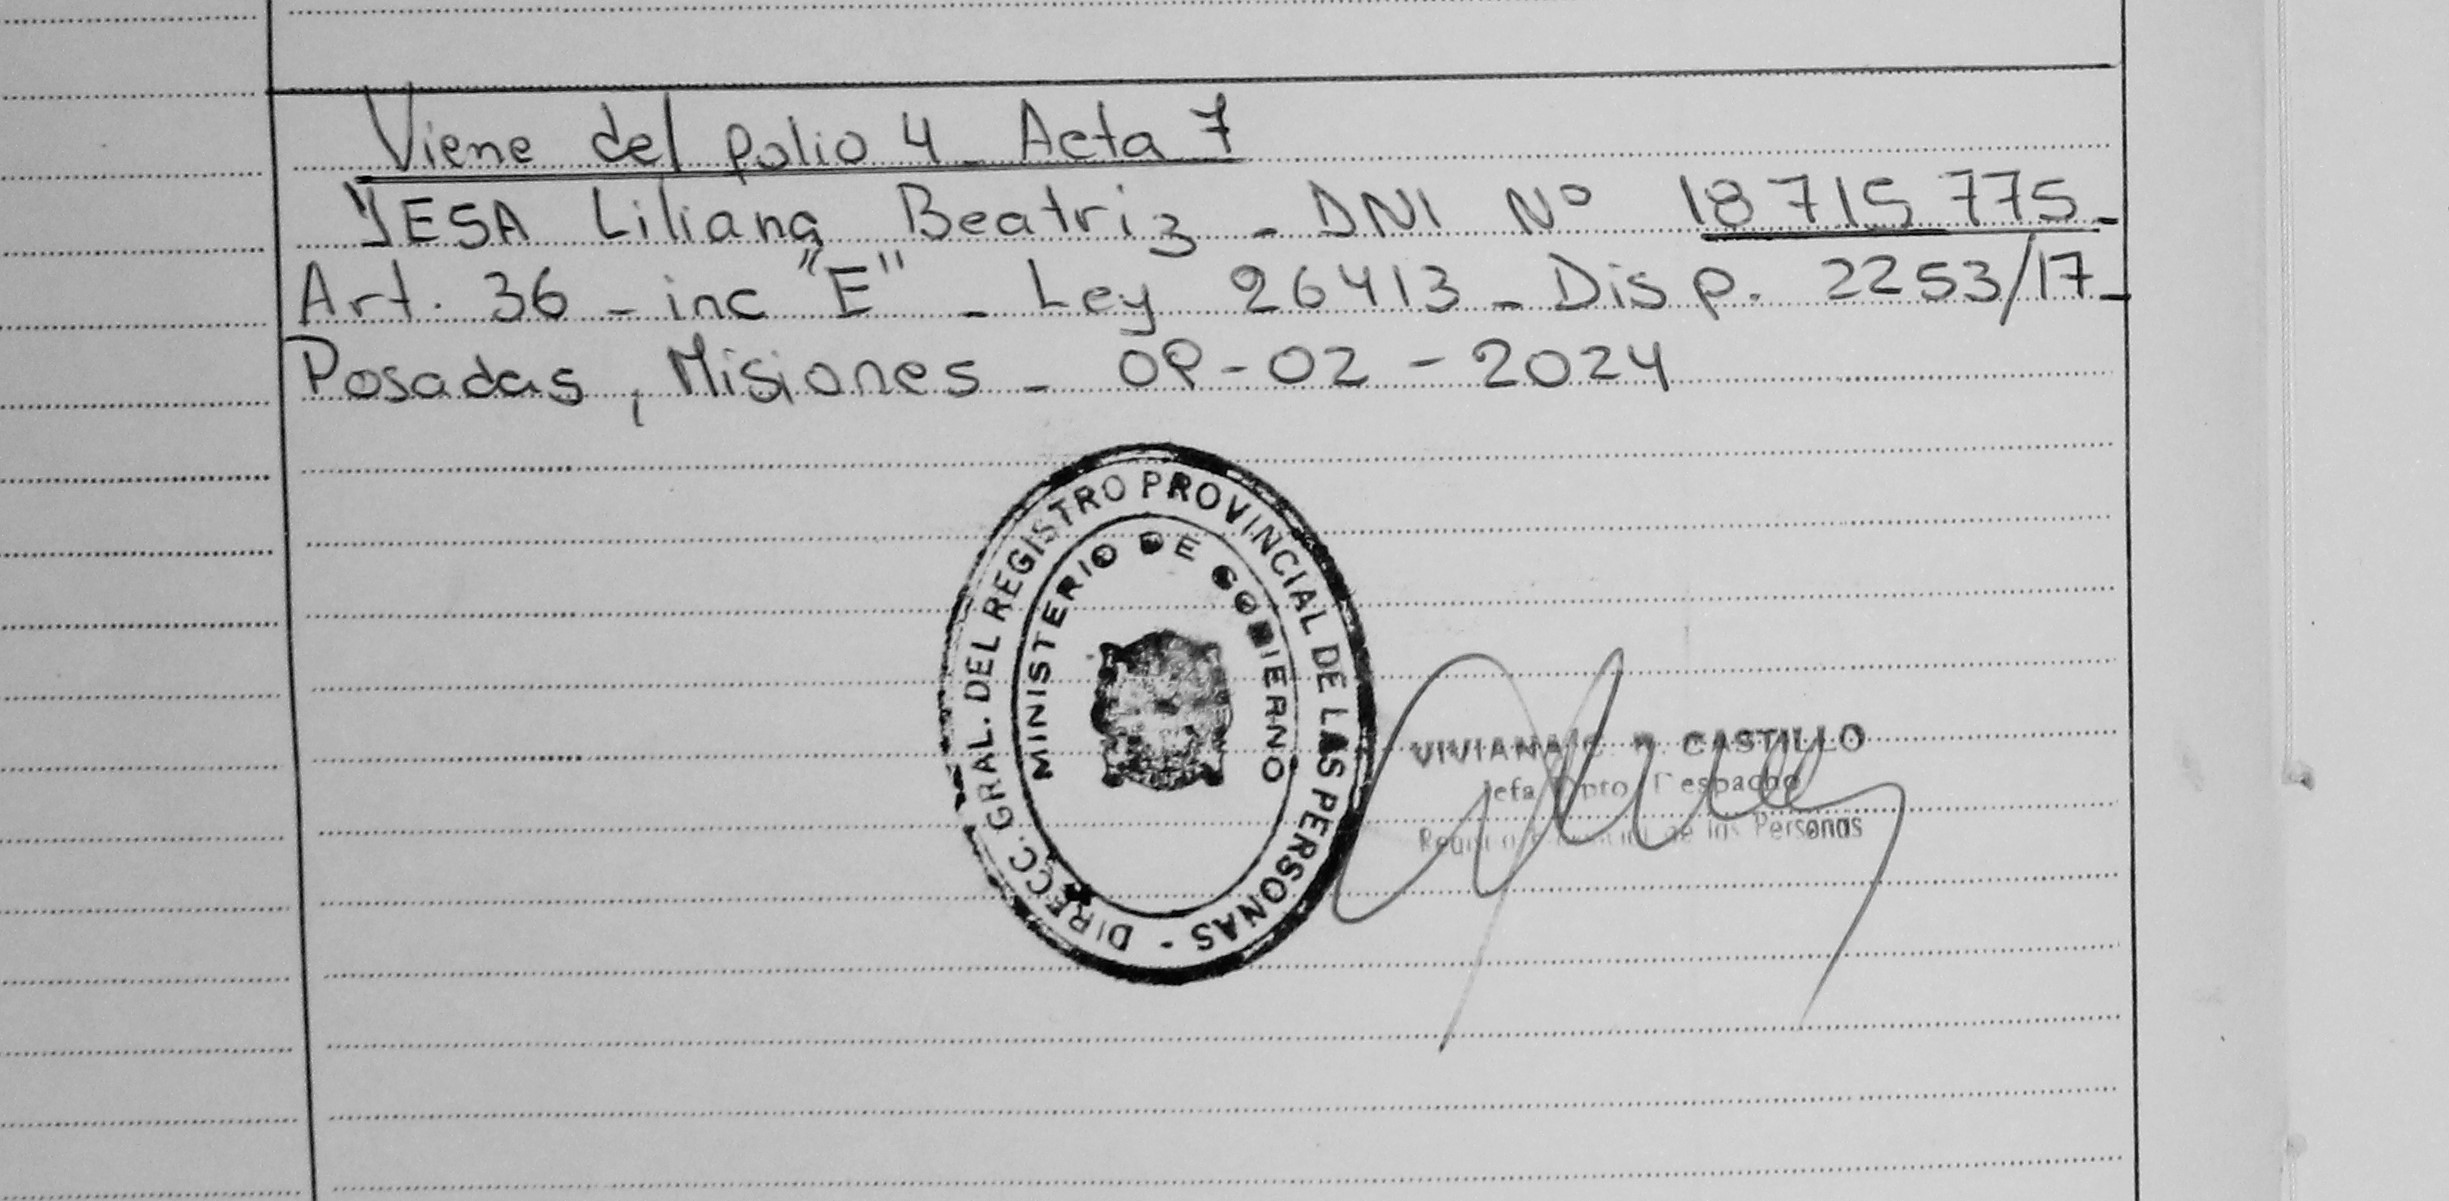 Viene del folio 4 - Acta 7
YESA Liliana Beatriz - DNI Nº 18715775 -
Art. 36 - inc "E" - Ley 26413 - Disp. 2253/17 -
Posadas, Misiones - 09-02-2024
DIRECC. GRAL. DEL REGISTRO PROVINCIAL DE LAS PERSONAS -
MINISTERIO DE GOBIERNO
VIVIANA CASTILLO
Jefa Dpto Despacho
de las Personas